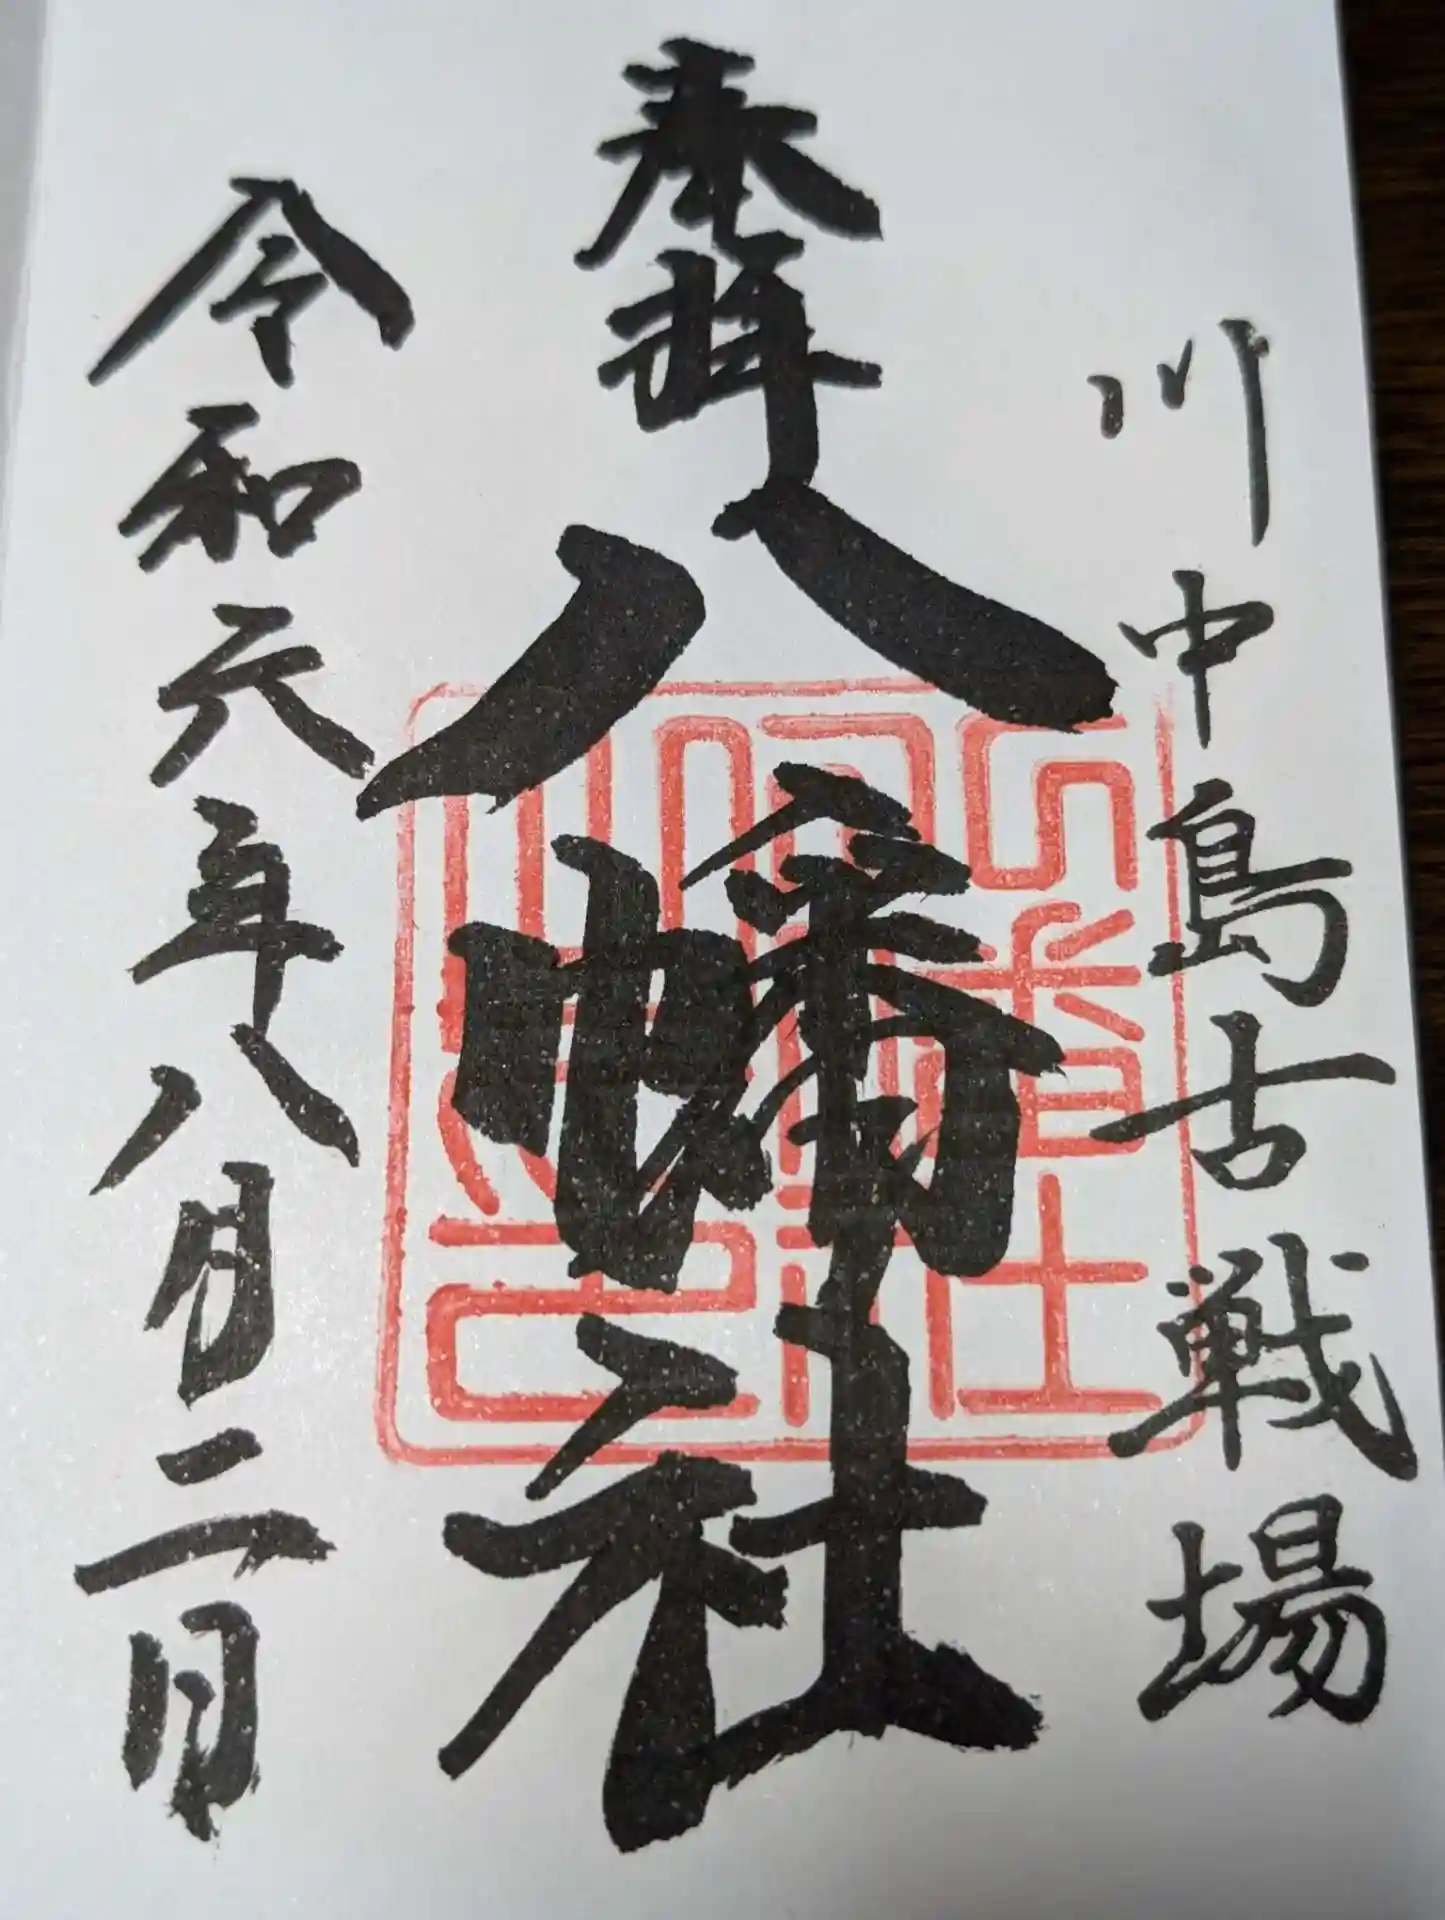 川中島古戦場
奉拝
八幡社
令和六年八月二日